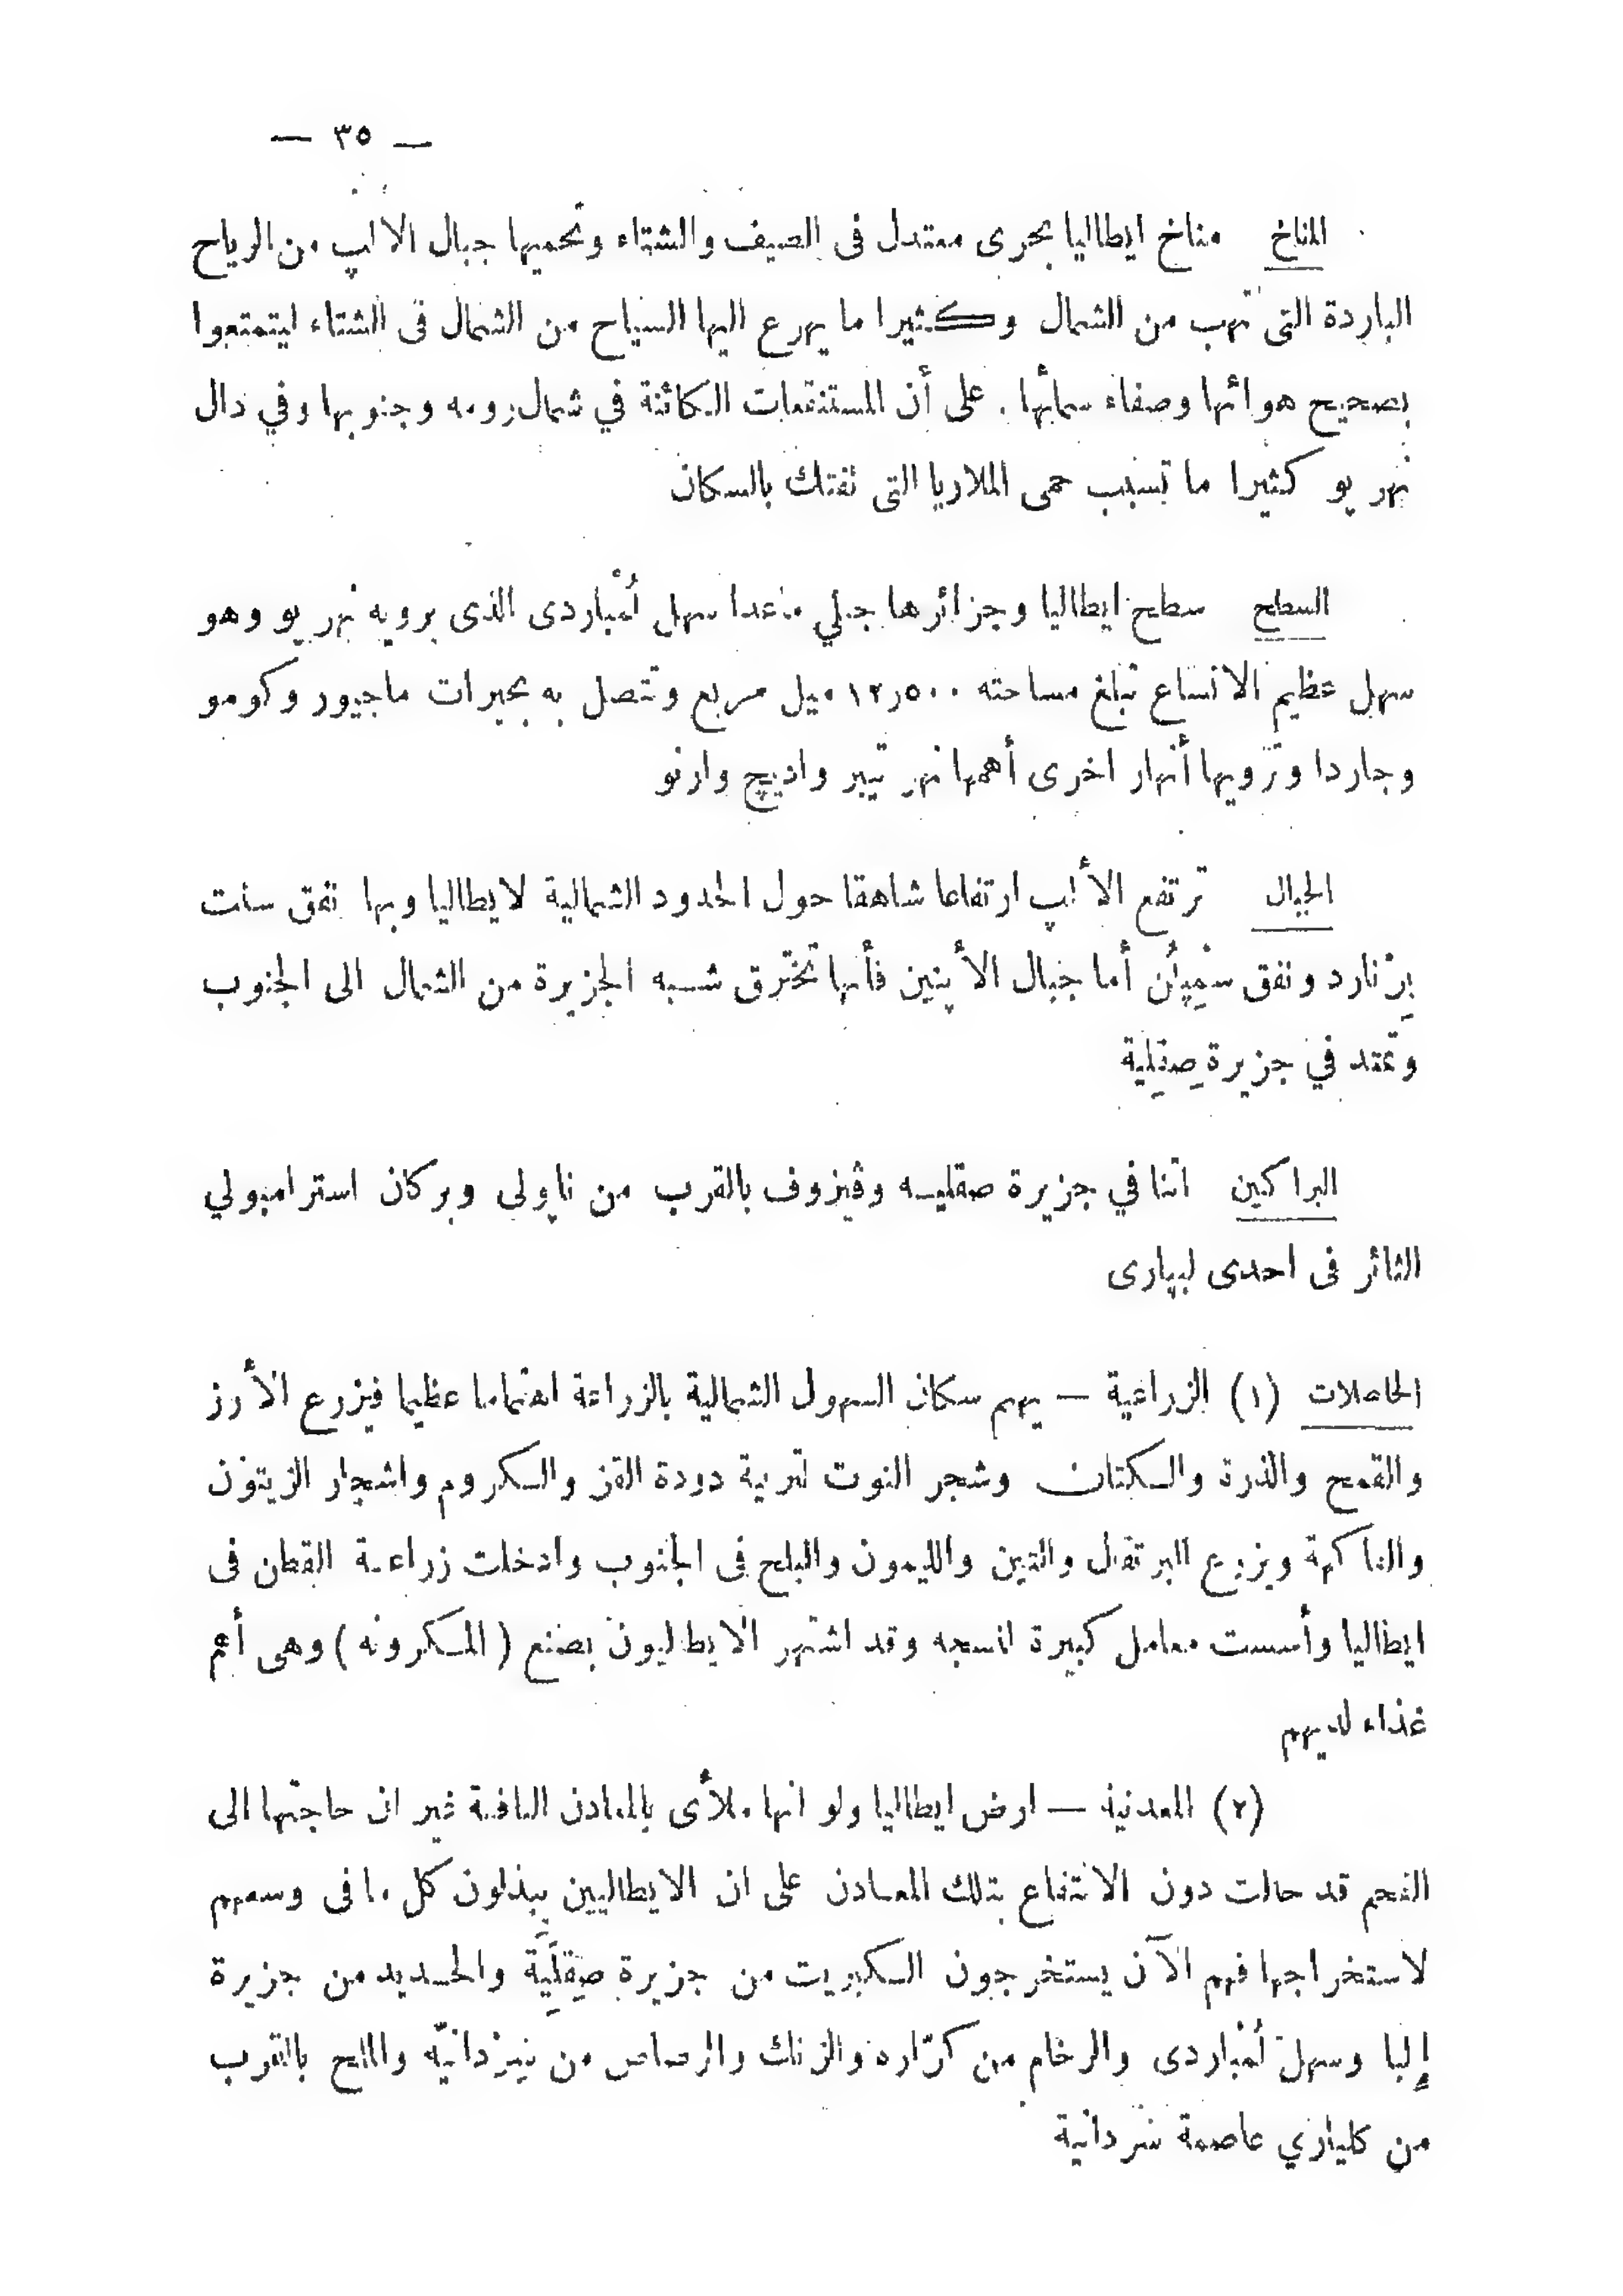 — ٣٥ —
المناخ مناخ ايطاليا بحرى معتدل فى الصيف والشتاء وتحميها جبال الالپ من الرياح
الباردة التى تهب من الشمال وكثيرا ما يهرع اليها السياح من الشمال فى الشتاء ليتمتعوا
بصحيح هوائها وصفاء سمائها . على أن المستنقعات الكائنة في شمال رومه وجنوبها وفي دال
نهر پو كثيرا ما تسبب حمى الملاريا التى تفتك بالسكان
السطح سطح ايطاليا وجزائرها جبلي ماعدا سهل لُمْباردى الذى يرويه نهر پو وهو
سهل عظيم الاتساع تبلغ مساحته ١٢٫٥٠٠ ميل مربع وتتصل به بحيرات ماجيور وكومو
وجاردا وترويها أنهار اخرى أهمها نهر تيبر واديچ وارنو
الجبال ترتفع الألپ ارتفاعا شاهقا حول الحدود الشمالية لايطاليا وبها نفق سانت
بِرْنارد ونفق سِمْپلُن أما جبال الأپنين فأنها تخترق شبه الجزيرة من الشمال الى الجنوب
وتمتد في جزيرة صِقِلية
البراكين اتنا في جزيرة صقليه وڤيزوف بالقرب من ناپولى وبركان استرامبولي
الثائر فى احدى ليپارى
الحاصلات (١) الزراعية — يهم سكان السهول الشمالية بالزراعة اهتماما عظيما فيزرع الأرز
والقمح والذرة والكتان وشجر التوت لتربية دودة القز والكروم واشجار الزيتون
والفاكهة ويزرع البرتقال والتين والليمون والبلح فى الجنوب وادخلت زراعة القطن فى
ايطاليا وأسست معامل كبيرة لنسجه وقد اشتهر الايطاليون بصنع (المكرونه) وهى أهم
غذاء لديهم
(٢) المعدنية — ارض ايطاليا ولو انها ملأى بالمعادن النافعة غير ان حاجتها الى
الفحم قد حالت دون الانتفاع بتلك المعادن على ان الايطاليين يبذلون كل ما فى وسعهم
لاستخراجها فهم الآن يستخرجون الكبريت من جزيرة صِقِلِيَّة والحديد من جزيرة
إلبا وسهل لُمْباردى والرخام من كرّاره والزنك والرصاص من والملح بالقرب
من كلياري عاصمة سردانية